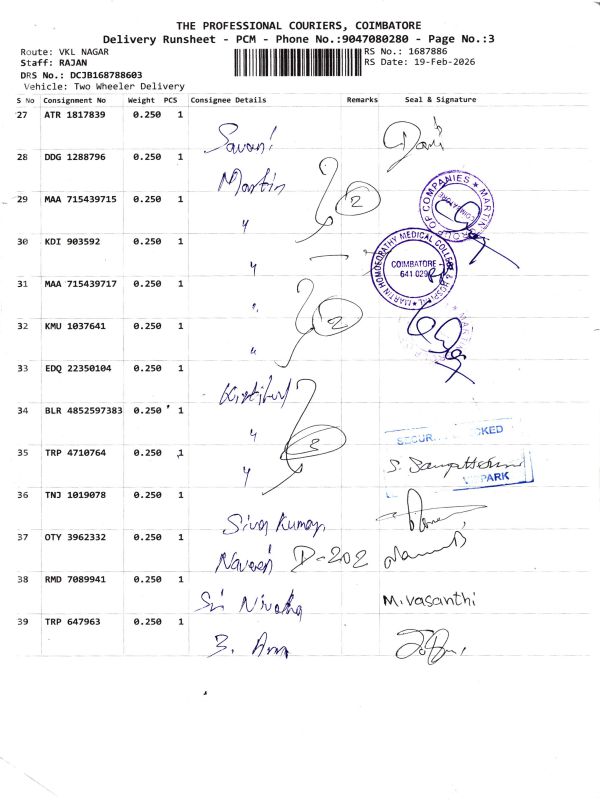 THE PROFESSIONAL COURIERS, COIMBATORE
Delivery Runsheet - PCM - Phone No.:9047080280 - Page No.:3
Route: VKL NAGAR RS No.: 1687886
Staff: RAJAN RS Date: 19-Feb-2026
DRS No.: DCJB168788603
Vehicle: Two Wheeler Delivery
S No Consignment No Weight PCS Consignee Details Remarks Seal & Signature
27 ATR 1817839 0.250 1
28 DDG 1288796 0.250 1
Martin 2
29 MAA 715439715 0.250 1
"
MARTIN GROUP OF COMPANIES COIMBATORE
30 KDI 903592 0.250 1
"
MARTIN HOMOEOPATHY MEDICAL COLLEGE & HOSPITAL
COIMBATORE -
641 029
31 MAA 715439717 0.250 1
"
2
32 KMU 1037641 0.250 1
"
33 EDQ 22350104 0.250 1
34 BLR 4852597383 0.250 1
"
3
35 TRP 4710764 0.250 1
"
PARK
36 TNJ 1019078 0.250 1
Siva Kumar
37 OTY 3962332 0.250 1
Naveen D-202
38 RMD 7089941 0.250 1
Sri M.Vasanthi
39 TRP 647963 0.250 1
B.